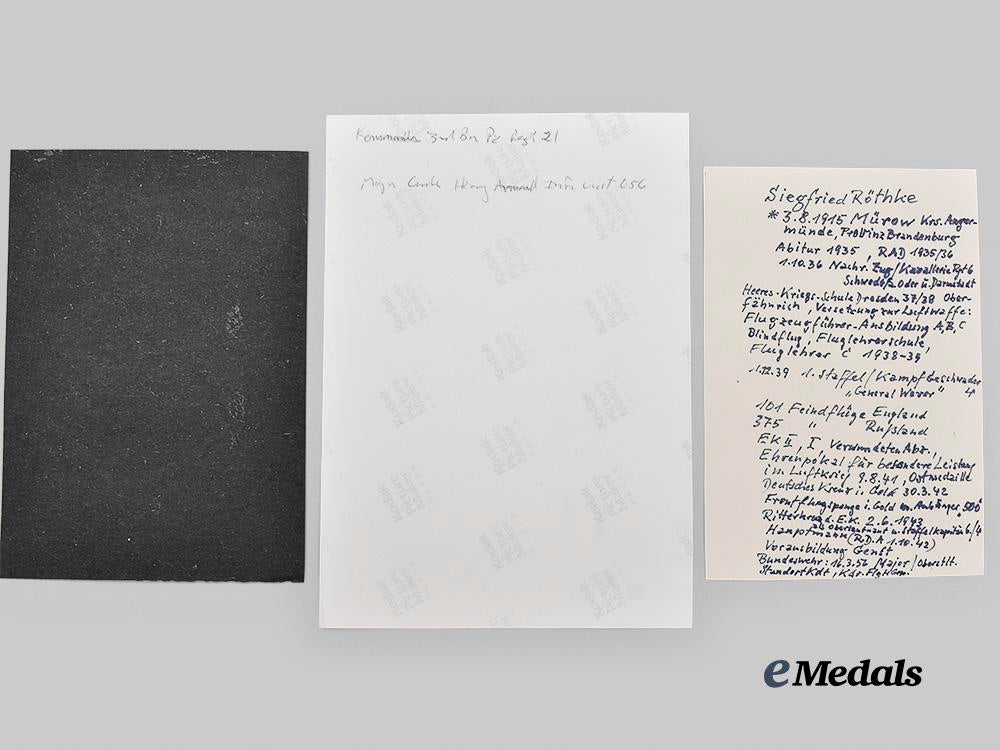 Kommandeur 3rd Bn Pz Regt 21
Heavy Inf unit 656
Kodak
Picture
Maker
Siegfried Röthke
* 3.8.1915 Mürow Krs. Anger-
münde, Provinz Brandenburg
Abitur 1935, RAD 1935/36
1.10.36 Nachr. Zug/Kavallerie Rgt 6
Schwedt/a. Oder u. Darmstadt
Heeres-Kriegs-Schule Dresden 37/38 Ober-
fähnrich, Versetzung zur Luftwaffe:
Flugzeugführer-Ausbildung A,B,C
Blindflug, Fluglehrerschule,
Fluglehrer "C" 1938-39
1.12.39 1. Staffel/Kampfgeschwader 4
"General Wever"
101 Feindflüge England
375 " Rußland
EK II, I Verwundeten Abz.,
Ehrenpokal für besondere Leistung
im Luftkrieg 9.8.41, Ostmedaille
Deutsches Kreuz i. Gold 30.3.42
Frontflugspange i. Gold m. Anhänger "500"
Ritterkreuz d. E.K. 2.6.1943
als Oberleutnant u. Staffelkapitän 6./4
Hauptmann (R.D.A 1.10.42)
Vorausbildung Genst
Bundeswehr: 16.3.56 Major/Oberstlt.
StandortKdt, Kdr. FlgHGrp.
eMedals